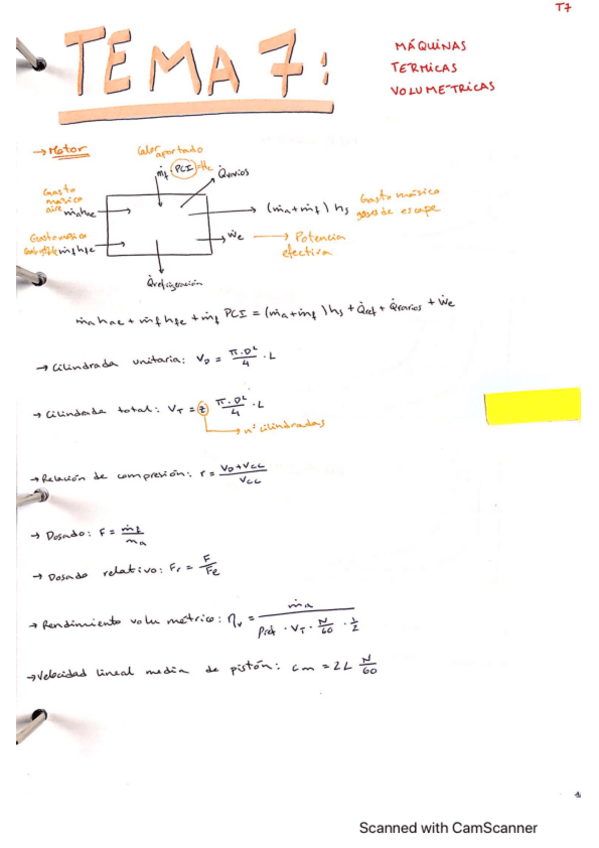 T7
TEMA 7:
MÁQUINAS
TERMICAS
VOLUMETRICAS
→ Motor
Calor aportado
ṁf · PCI = Hc
Q̇varios
Gasto
másico
aire ṁa hae
(ṁa+ṁf) hs
Gasto másico
gases de escape
Gasto másico
combustible ṁf hfe
Ẇe → Potencia
efectiva
Q̇refrigeración
ṁa hae + ṁf hfe + ṁf PCI = (ṁa+ṁf) hs + Q̇ref + Q̇varios + Ẇe
→ Cilindrada unitaria: VD = π·D²/4 · L
→ Cilindrada total: VT = z π·D²/4 · L
→ nº cilindradas
→ Relación de compresión: r = VD+VCC/VCC
→ Dosado: F = ṁf/ṁa
→ Dosado relativo: Fr = F/Fe
→ Rendimiento volumétrico: ηv = ṁa/ρref · VT · N/60 · 1/2
→ Velocidad lineal media de pistón: cm = 2L N/60
Scanned with CamScanner